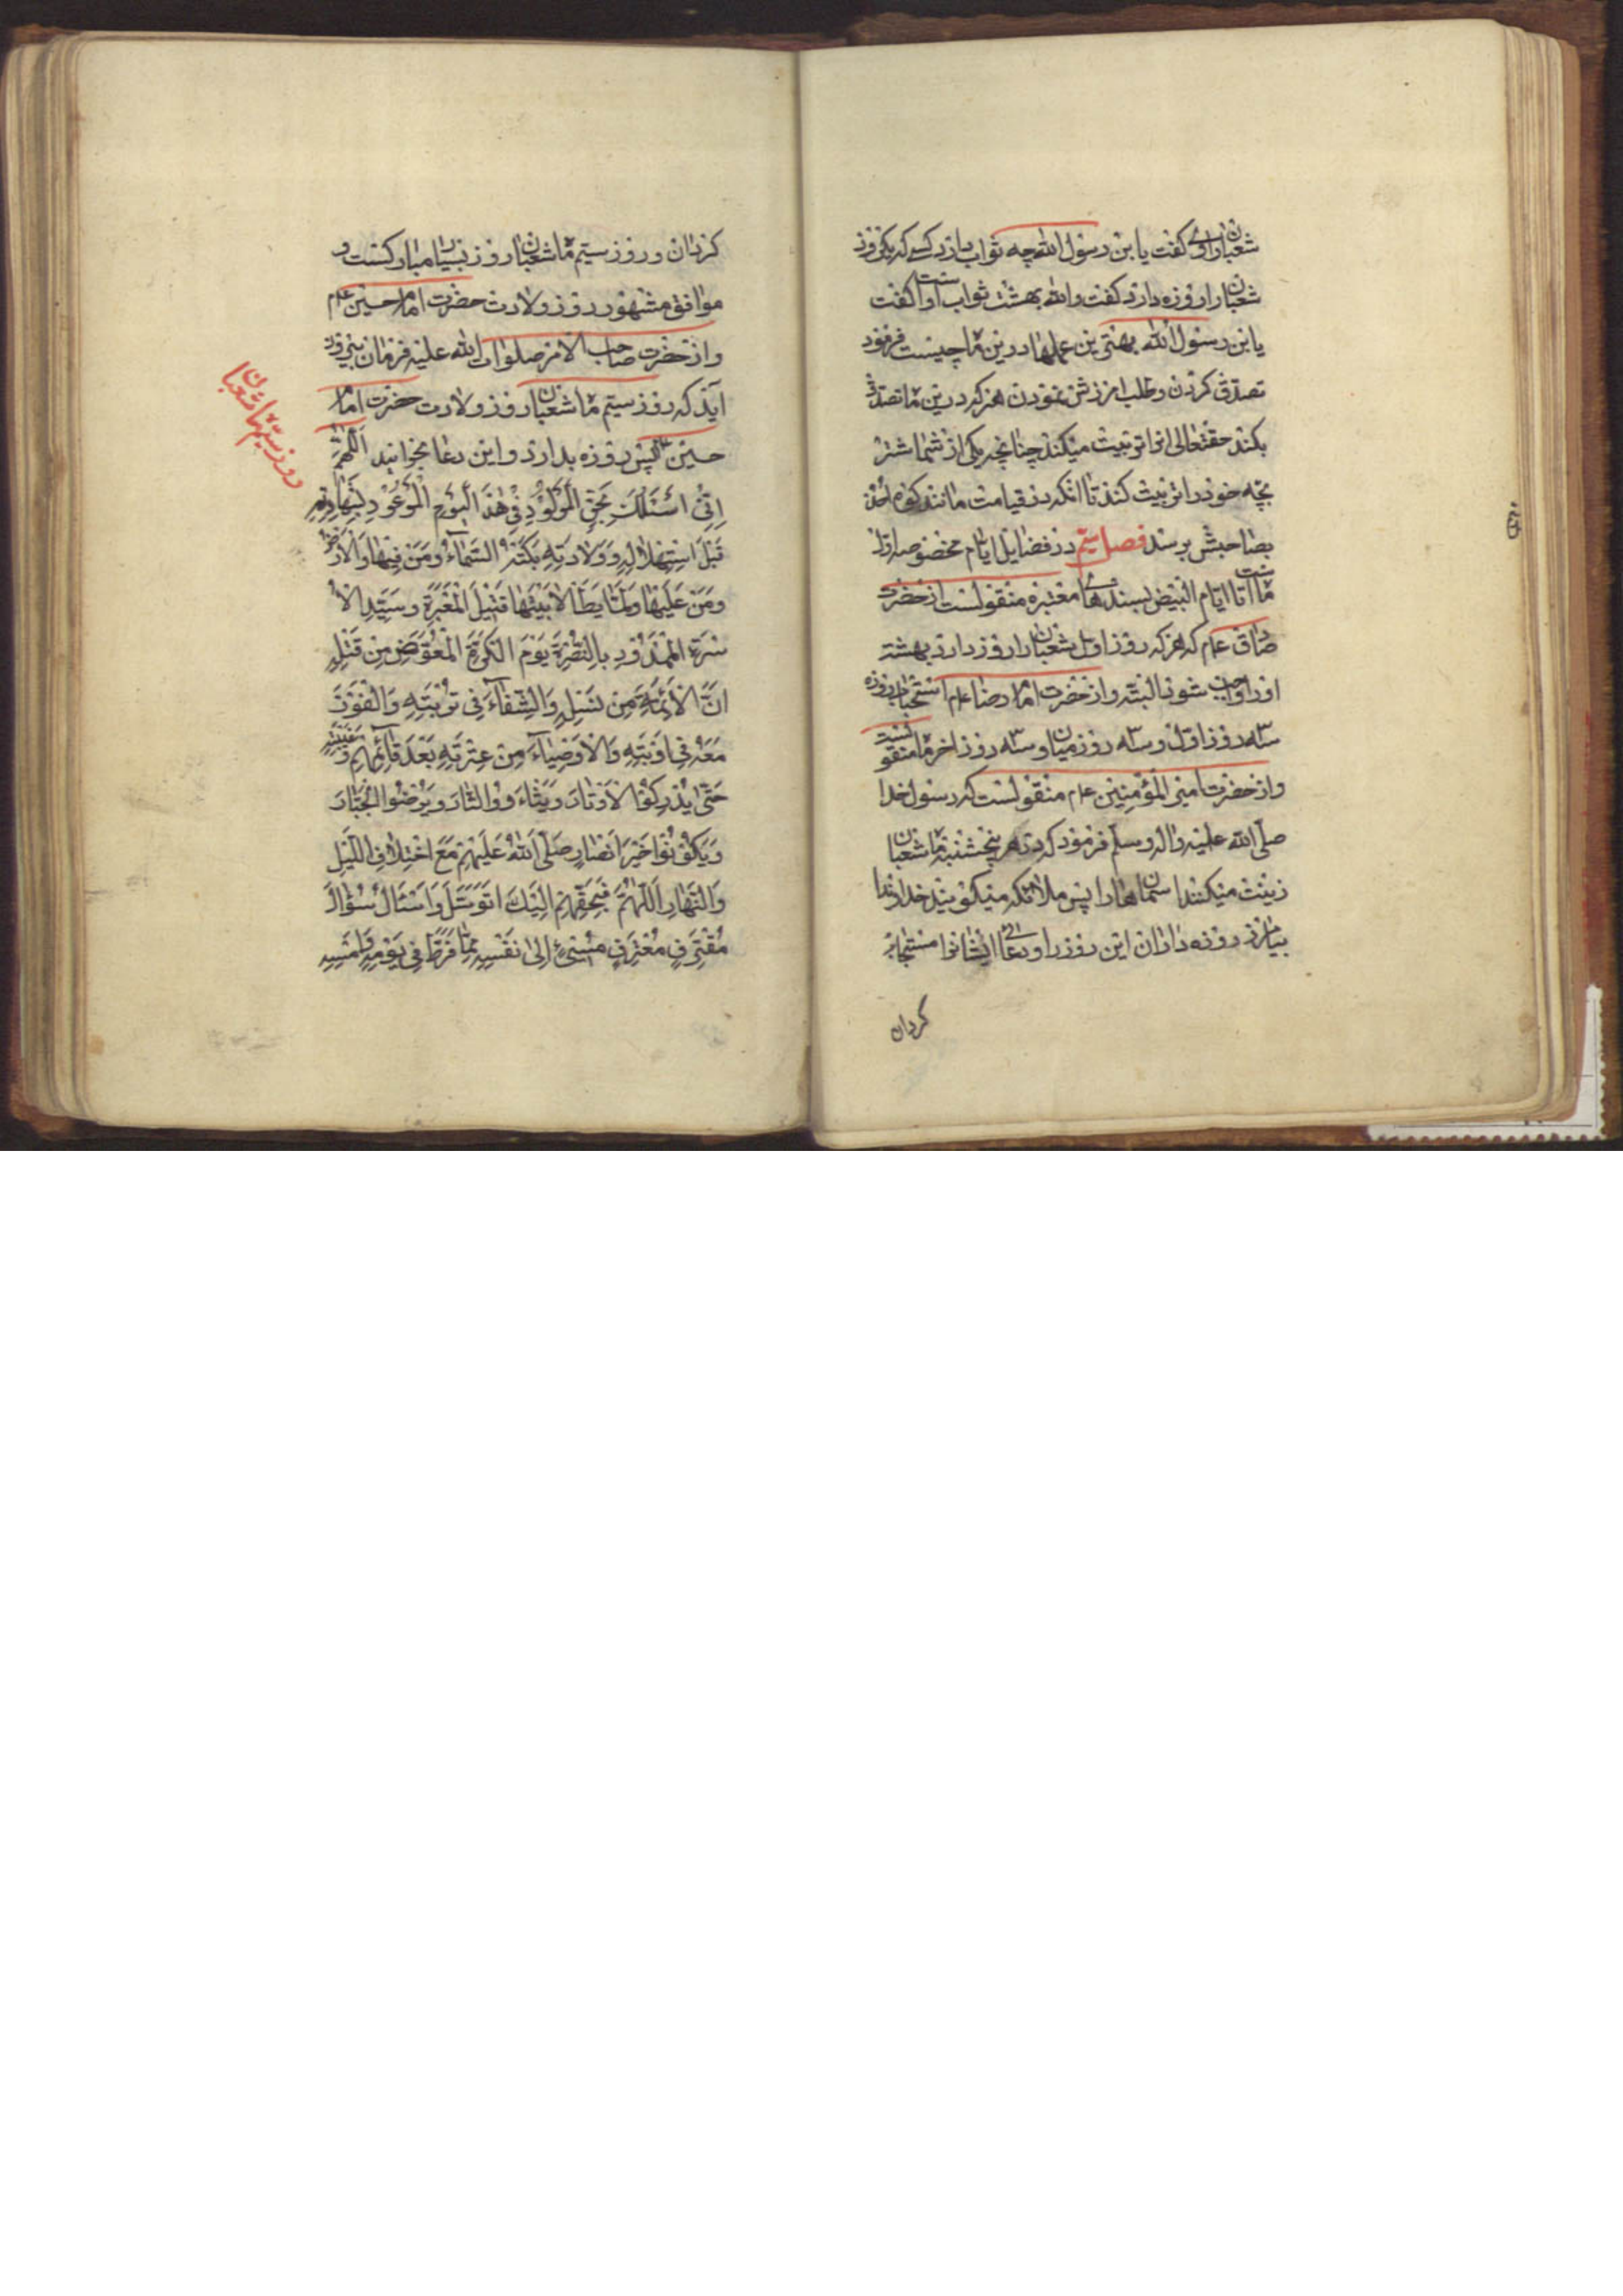 شعبان راوی گفت یا بن رسول الله چه ثواب دارد کسی که یکروز
شعبان را روزه دارد گفت والله بهشت ثواب اوست گفت
یا بن رسول الله بهترین عملها درین ماه چیست فرمود
تصدق کردن و طلب امرزش نمودن هر که درین ماه تصدق
بکند حقتعالی انرا تربیت میکند چنانچه یکی از شما شتر
بچه خود را تربیت کند تا انکه در قیامت مانند کوه احد
بصاحبش برسد فصل سیم در فضایل ایام مخصوصه اول
ماه است تا ایام البیض بسندهای معتبره منقولست از حضرت
صادق علم که هر که روز اول شعبان را روزه دارد بهشت
او را واجب شود البته و از حضرت امام رضا علم استحباب روزه
سه روز اول و سه روز میان و سه روز اخر ماه منقولست
و از حضرت امیر المؤمنین علم منقولست که رسول خدا
صلی الله علیه واله وسلم فرمود که در هر پنجشنبه ماه شعبان
زینت میکنند اسمانها را پس ملائکه میگویند خداوندا
بیامرز روزه داران این روز را و دعای ایشانرا مستجاب
کردان
کردان و روز سیم ماه شعبان روز بسیار مبارکست و
موافق مشهور روز ولادت حضرت امام حسین علم
و از حضرت صاحب الامر صلوات الله علیه فرمان بیرون
آید که روز سیم ماه شعبان روز ولادت حضرت امام
حسین علم پس روزه بدارد و این دعا بخوانید اللهم
اِنّی اسئلک بحق المولود فی هذا الیوم الموعود بشهادته
قبل استهلاله وولادته بکته السماء ومن فیها والارض
ومن علیها ولما یطأ لابیتها قتیل العبرة وسید الا
سرة الممدود بالنصرة یوم الکرة المعوض من قتله
انّ الائمة من نسله والشفاء فی تربته والفوز
معه فی اوبته والاوصیاء من عترته بعد قائمهم وغیبته
حتی یدرکوا الاوتار ویثاروا الثار ویرضوا الجبار
ویکونوا خیر انصار صلی الله علیهم مع اختلاف اللیل
والنهار اللهم فبحقهم الیک اتوسل واسئل سؤال
مقترف معترف مسیء الی نفسه مما فرط فی یومه وامسه
روز سیم ماه شعبان